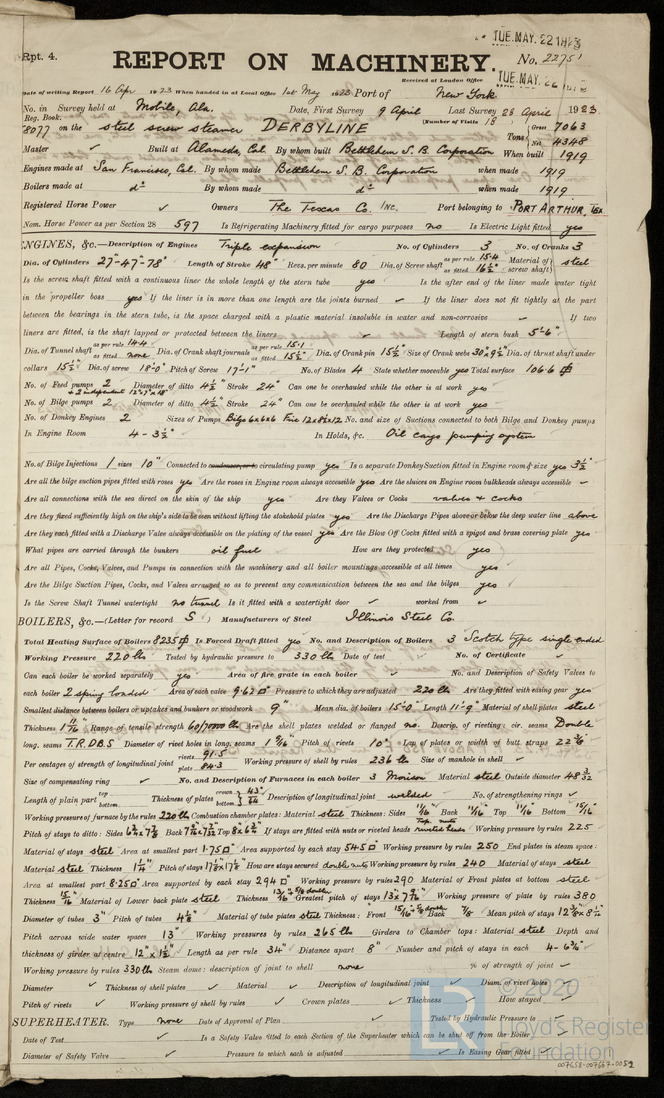 TUE. MAY. 22 1923
Rpt. 4.
REPORT ON MACHINERY.
No. 22751
Received at London Office TUE. MAY. 22 1923
Date of writing Report 16 Apr 1923 When handed in at Local Office 1st May 1923 Port of New York
No. in Survey held at Mobile, Ala. Date, First Survey 9 April Last Survey 28 April 1923
Reg. Book. (Number of Visits 18
8077 on the steel screw steamer DERBYLINE Tons { Gross 7063 Net 4348
Master ✓ Built at Alameda, Cal. By whom built Bethlehem S. B. Corporation When built 1919
Engines made at San Francisco, Cal. By whom made Bethlehem S. B. Corporation when made 1919
Boilers made at do By whom made do when made 1919
Registered Horse Power ✓ Owners The Texas Co. Inc. Port belonging to PORT ARTHUR, Tex.
Nom. Horse Power as per Section 28 597 Is Refrigerating Machinery fitted for cargo purposes no Is Electric Light fitted yes
ENGINES, &c.—Description of Engines Triple expansion No. of Cylinders 3 No. of Cranks 3
Dia. of Cylinders 27"-47"-78" Length of Stroke 48" Revs. per minute 80 Dia. of Screw shaft as per rule 15.4 as fitted 16½" Material of screw shaft steel
Is the screw shaft fitted with a continuous liner the whole length of the stern tube yes Is the after end of the liner made water tight
in the propeller boss yes If the liner is in more than one length are the joints burned ✓ If the liner does not fit tightly at the part
between the bearings in the stern tube, is the space charged with a plastic material insoluble in water and non-corrosive ✓ If two
liners are fitted, is the shaft lapped or protected between the liners ✓ Length of stern bush 5'-6"
Dia. of Tunnel shaft as per rule 14.4 as fitted none Dia. of Crank shaft journals as per rule 15.1 as fitted 15½" Dia. of Crank pin 15½" Size of Crank webs 30"x9½" Dia. of thrust shaft under
collars 15½" Dia. of screw 18'-0" Pitch of Screw 17'-1" No. of Blades 4 State whether moveable yes Total surface 106.6
No. of Feed pumps 2 + 2 independent 12"x7"x18" Diameter of ditto 4½" Stroke 24" Can one be overhauled while the other is at work yes
No. of Bilge pumps 2 Diameter of ditto 4½" Stroke 24" Can one be overhauled while the other is at work yes
No. of Donkey Engines 2 Sizes of Pumps Bilge 6x6x6 Fire 12x8½x12 No. and size of Suctions connected to both Bilge and Donkey pumps
In Engine Room 4 - 3½" In Holds, &c. Oil cargo pumping system
No. of Bilge Injections 1 sizes 10" Connected to condenser, or to circulating pump yes Is a separate Donkey Suction fitted in Engine room & size yes 3½"
Are all the bilge suction pipes fitted with roses yes Are the roses in Engine room always accessible yes Are the sluices on Engine room bulkheads always accessible ✓
Are all connections with the sea direct on the skin of the ship yes Are they Valves or Cocks valves + cocks
Are they fixed sufficiently high on the ship's side to be seen without lifting the stokehold plates yes Are the Discharge Pipes above or below the deep water line above
Are they each fitted with a Discharge Valve always accessible on the plating of the vessel yes Are the Blow Off Cocks fitted with a spigot and brass covering plate yes
What pipes are carried through the bunkers oil fuel How are they protected yes
Are all Pipes, Cocks, Valves, and Pumps in connection with the machinery and all boiler mountings accessible at all times yes
Are the Bilge Suction Pipes, Cocks, and Valves arranged so as to prevent any communication between the sea and the bilges yes
Is the Screw Shaft Tunnel watertight no tunnel Is it fitted with a watertight door ✓ worked from ✓
BOILERS, &c.—(Letter for record S) Manufacturers of Steel Illinois Steel Co.
Total Heating Surface of Boilers 8235 Is Forced Draft fitted yes No. and Description of Boilers 3 Scotch type single ended
Working Pressure 220 lbs Tested by hydraulic pressure to 330 lbs Date of test ✓ No. of Certificate ✓
Can each boiler be worked separately yes Area of fire grate in each boiler ✓ No. and Description of Safety Valves to
each boiler 2 spring loaded Area of each valve 9.62 Pressure to which they are adjusted 220 lb Are they fitted with easing gear yes
Smallest distance between boilers or uptakes and bunkers or woodwork 9" Mean dia. of boilers 15'-0" Length 11'-9" Material of shell plates steel
Thickness 1 11/16" Range of tensile strength 60/70000 lbs Are the shell plates welded or flanged no. Descrip. of riveting: cir. seams Double
long. seams T.R.D.B.S Diameter of rivet holes in long. seams 1 9/16" Pitch of rivets 10" Lap of plates or width of butt straps 22⅜
Per centages of strength of longitudinal joint rivets 91.5 plate 84.3 Working pressure of shell by rules 236 lb Size of manhole in shell ✓
Size of compensating ring ✓ No. and Description of Furnaces in each boiler 3 Morison Material steel Outside diameter 48 3/32
Length of plain part top bottom Thickness of plates crown bottom } 43/64" Description of longitudinal joint welded No. of strengthening rings ✓
Working pressure of furnace by the rules 220 lb Combustion chamber plates: Material steel Thickness: Sides 11/16" Back 11/16" Top 11/16" Bottom 15/16"
Pitch of stays to ditto: Sides Back Top 8x6¾" If stays are fitted with nuts or riveted heads Top nuts riveted heads Working pressure by rules 225
Material of stays steel Area at smallest part 1.75 Area supported by each stay Working pressure by rules 250 End plates in steam space:
Material steel Thickness 1¼" Pitch of stays How are stays secured double nuts Working pressure by rules 240 Material of stays steel
Area at smallest part 8.25 Area supported by each stay 294 Working pressure by rules 290 Material of Front plates at bottom steel
Thickness 15/16" Material of Lower back plate steel Thickness Greatest pitch of stays Working pressure of plate by rules 380
Diameter of tubes 3" Pitch of tubes 4⅛" Material of tube plates steel Thickness: Front Back 7/8" Mean pitch of stays
Pitch across wide water spaces 13" Working pressures by rules 265 lb Girders to Chamber tops: Material steel Depth and
thickness of girder at centre 12" x 1½" Length as per rule 34" Distance apart 8" Number and pitch of stays in each 4 - 6¾"
Working pressure by rules 330 lb Steam dome: description of joint to shell none % of strength of joint ✓
Diameter ✓ Thickness of shell plates ✓ Material ✓ Description of longitudinal joint ✓ Diam. of rivet holes
Pitch of rivets ✓ Working pressure of shell by rules ✓ Crown plates ✓ Thickness ✓ How stayed ✓
SUPERHEATER. Type none Date of Approval of Plan ✓ Tested by Hydraulic Pressure to ✓
Date of Test ✓ Is a Safety Valve fitted to each Section of the Superheater which can be shut off from the Boiler ✓
Diameter of Safety Valve ✓ Pressure to which each is adjusted ✓ Is Easing Gear fitted ✓
© 2020
Lloyd's Register
Foundation
007658-007667-0052